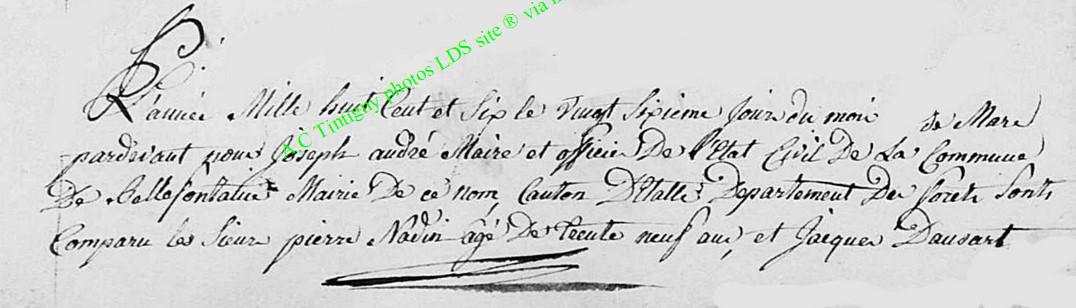 L'année Mille huit Cent et Six le vingt Sixieme Jour du mois de Mars
pardevant nous Joseph andré Maire et officier De l'Etat Civil De La Commune
De Bellefontaine Mairie De ce nom, Canton D'Etalle Departement Des forets Sont
Comparu les Sieurs pierre Nadin agé De trente neuf ans, et Jacques Dausart
AC Tintigny photos LDS site ® via